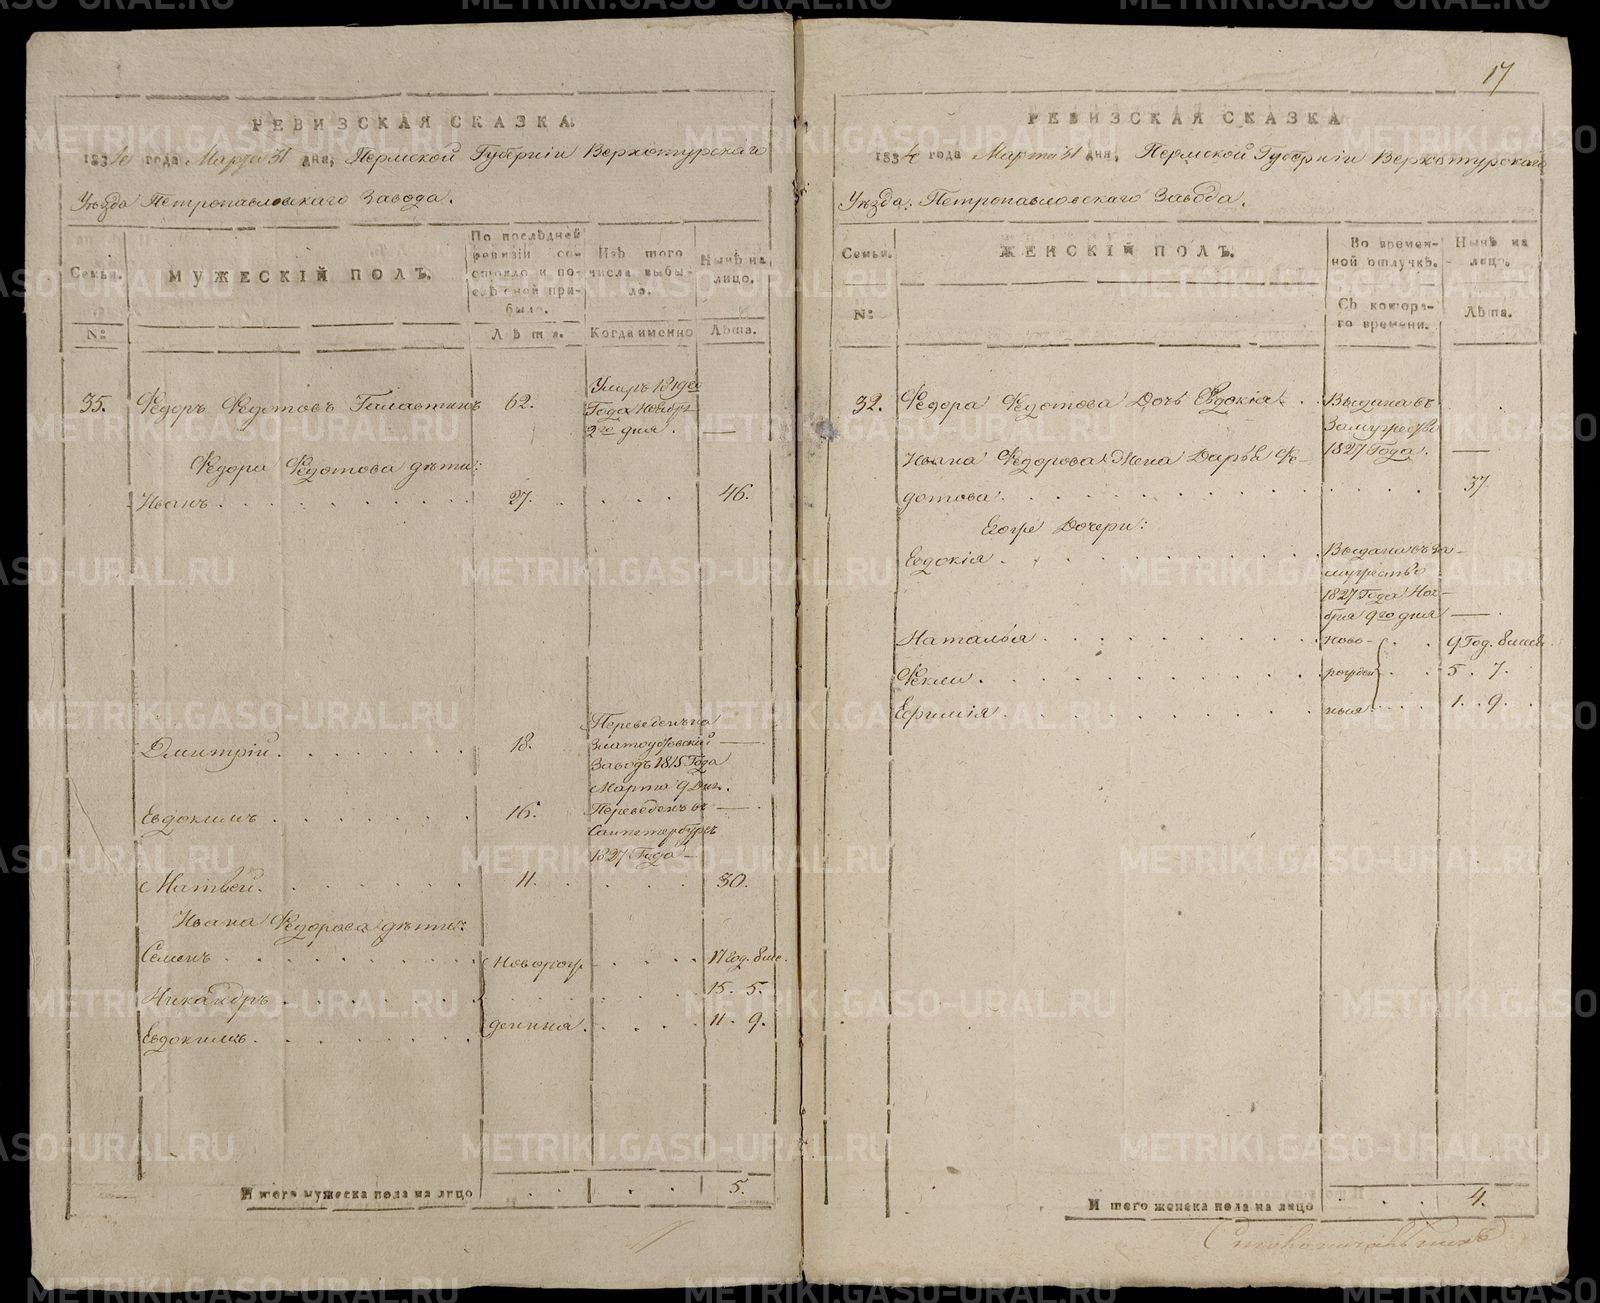 РЕВИЗСКАЯ СКАЗКА.
1834 года Марта 31 дня, Пермской Губерніи Верхотурскаго
Уѣзда Петропавловскаго Завода.
Семьи.
МУЖЕСКІЙ ПОЛЪ.
По послѣдней ревизіи состояло и послѣ оной прибыло.
Изъ того числа выбыло.
Нынѣ на лицо.
№:
Лѣта.
Когда именно
Лѣта.
35. Ѳедоръ Ѳедотовъ 62. Умеръ
Года Ноября
2го дня. —
Ѳедора Ѳедотова дѣти:
Иванъ 27. 46.
Дмитрій. 18. Переведенъ на
Златоустовскій —
Заводъ 1815 Года
Марта 9 Дня.
Евдокимъ 16. Переведенъ въ —
Санпетербургъ
1827 Года —
Матвей. 11. 30.
Ивана Ѳедорова дѣти:
Семенъ Новорож 17 Год. 8 мѣс.
Никандръ 15. 5.
Евдокимъ. денныя. 11. 9.
Итого мужеска пола на лицо 5.
17
РЕВИЗСКАЯ СКАЗКА
1834 года Марта 31 дня, Пермской Губерніи Верхотурскаго
Уѣзда. Петропавловскаго Завода.
Семьи.
ЖЕНСКІЙ ПОЛЪ.
Во временной отлучкѣ.
Нынѣ на лицо.
№:
Съ котораго времени.
Лѣта.
32. Ѳедора Ѳедотова Дочь Евдокія Выдана въ
Замужество
1827 Года. —
Ивана Ѳедорова Жена Дарья Ѳе-
дотова 37
Егоже Дочери:
Евдокія Выдана въ за-
мужество
1827 Года Ноя-
бря 9го дня —
Наталья Ново- 9 Год. 8 мѣс
Ѳекла рожден 5. 7.
Ефимія ныя 1. 9.
Итого женска пола на лицо 4.
METRIKI.GASO-URAL.RU